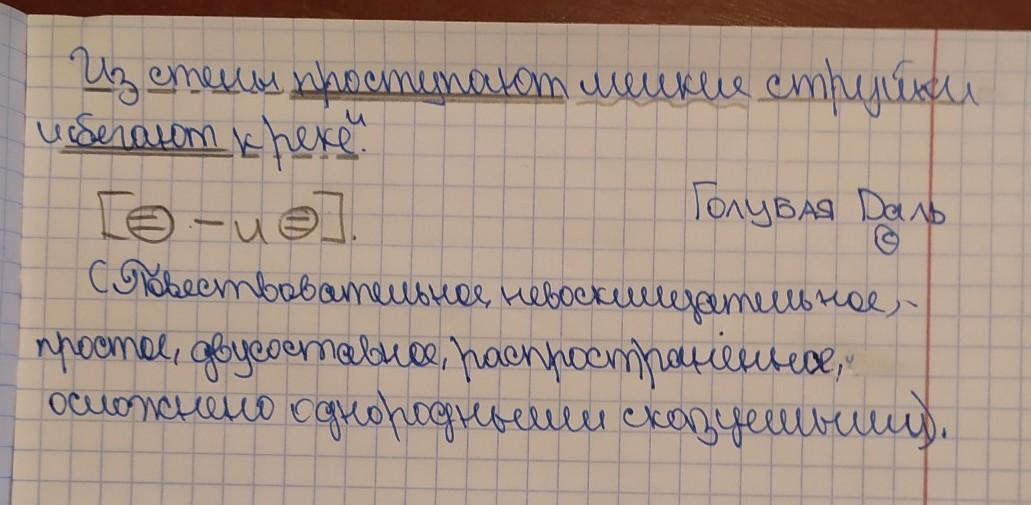 Из стены проступают мелкие струйки
и сбегают к реке.
[⊜ – и ⊜].
Голубая Даль
(Повествовательное, невосклицательное,
простое, двусоставное, распространённое,
осложнено однородными сказуемыми).